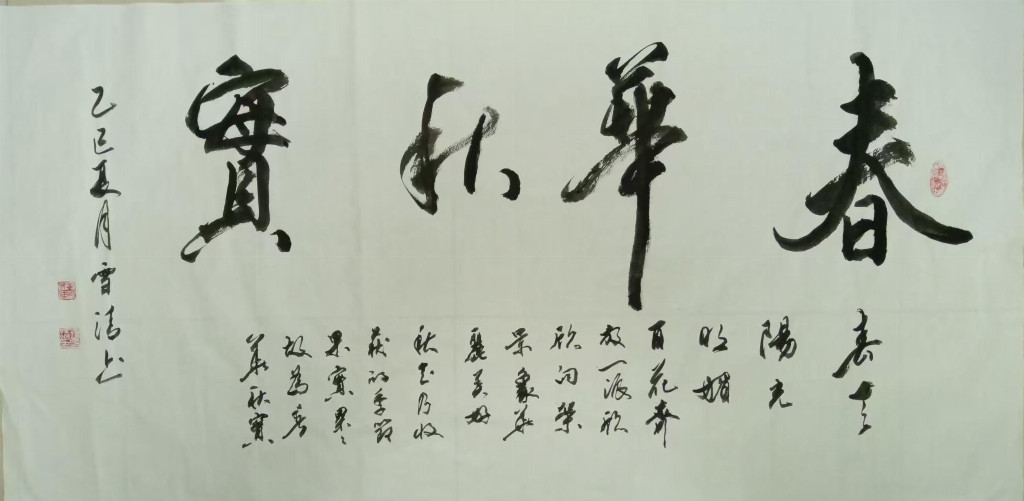 春華秋實
春天
陽光
明媚
百花齊
放一派欣
欣向榮
景象華
麗美好
秋天乃收
莪的季節
果實累々
故為春
華秋實
乙巳夏月雪清